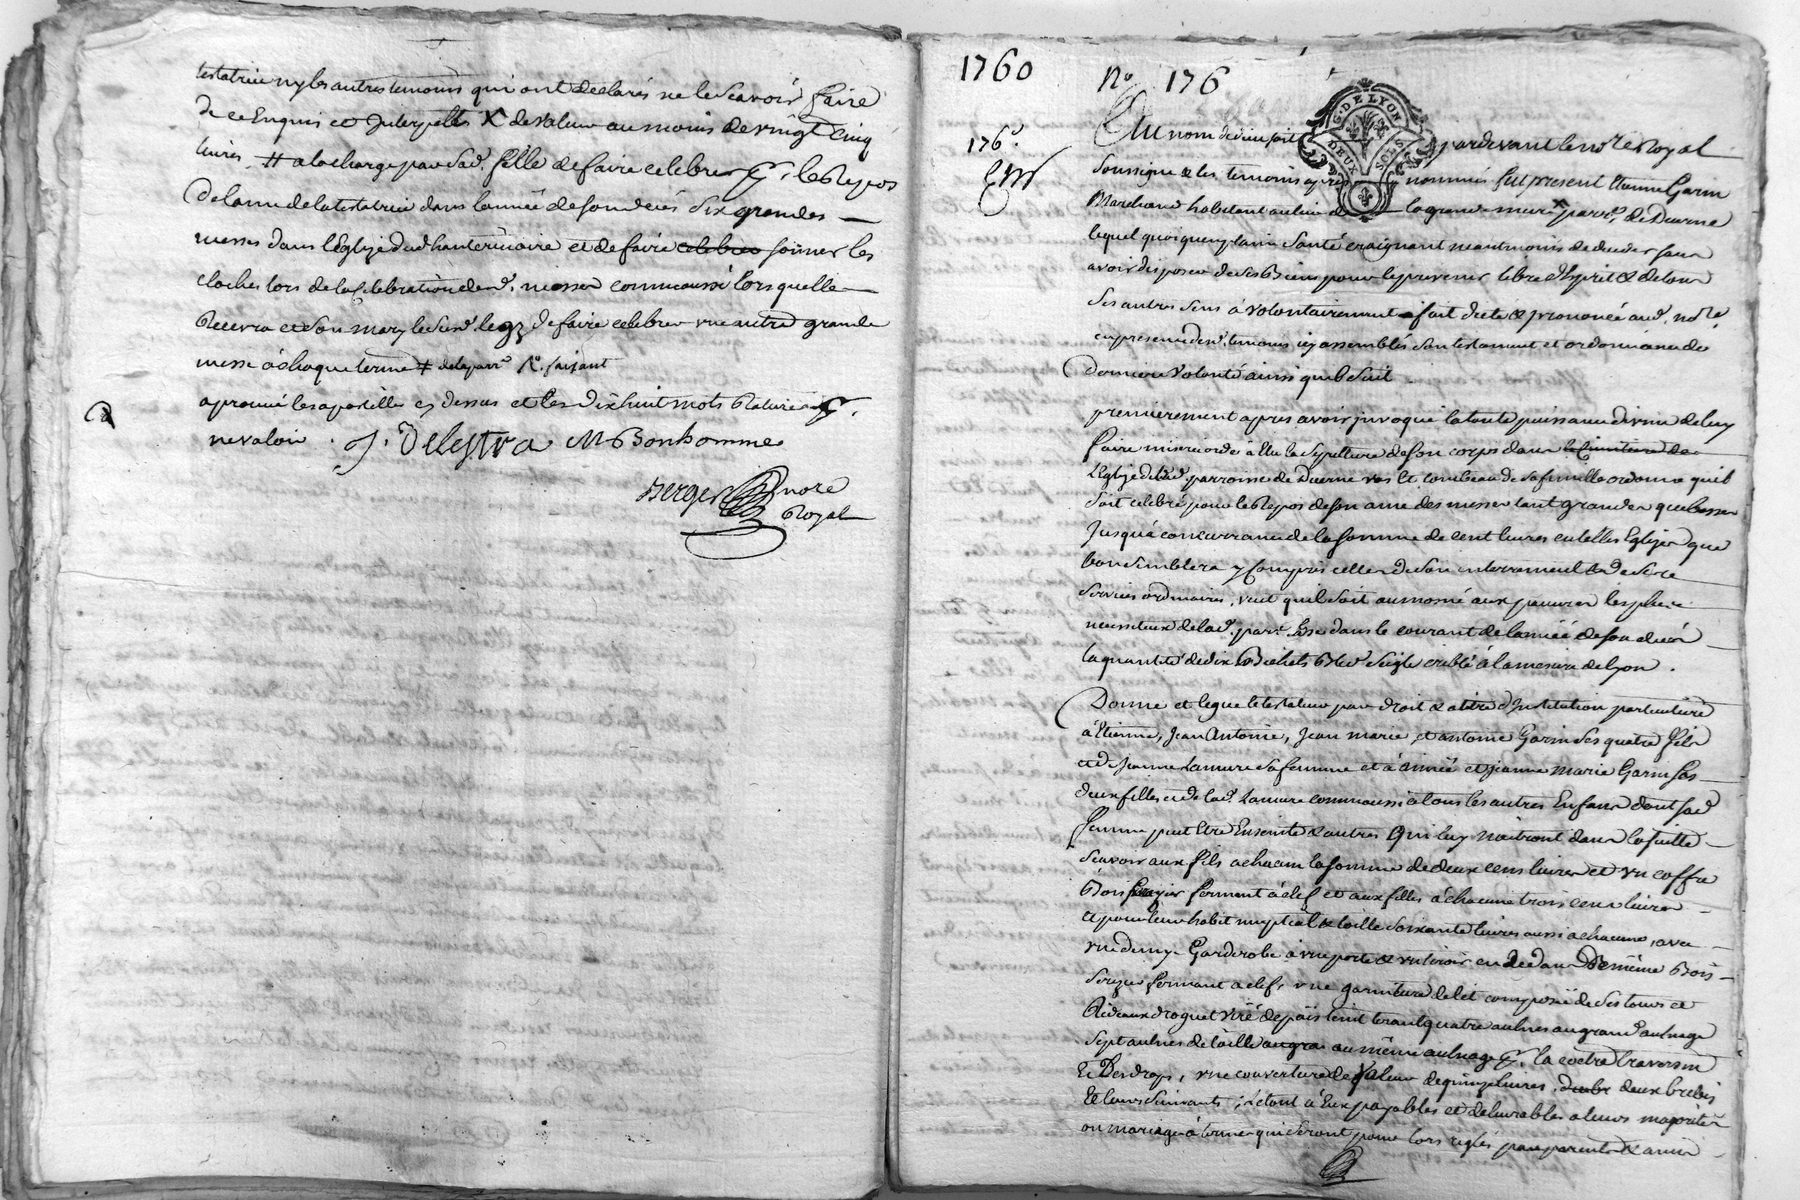 testatrice ny les autres temoins qui ont declarés ne le scavoir faire
de ce Enquis et Interpellés X de valeur au moins de vingt cinq
livres # a la charge par sad. fille de faire celebrer le Repos
de lame de la testatrice dans lannée de son deces Six grandes
messes dans l'Eglise dud. et de faire celebrer sonner les
cloches lors de la Celebration desd. messes comme aussi lors quelle
Recevra et son mary le susd. legz de faire celebrer une autre grande
messe a chaque terme # de la parr. faisant
aprouvé les apostilles cy dessus et les dix huit mots Raturés
ne valoir . J. Delestra M Bonhomme
Berger nore
Royal
1760
No. 176
176.
Au nom de dieu soit pardevant le nore Royal
Soussigné & les temoins apres nommés fut present Etienne Garin
Marchand habitant au lieu de la grand parr. de Duerne
lequel quoiquen plaine Santé craignant neantmoins de deceder sans
avoir disposé de ses Biens pour le prevenir libre d'Esprit & de tous
Ses autres Sens à volontairement fait dicté & prononcé aud. nore.
en presence desd. temoins icy assemblés Son testament et ordonnance de
derniere volonté ainsi quil suit
premierement apres avoir invoqué la toute puissance divine de luy
faire misericorde à Elu la Sepulture de son corps dans le Cimitiere de
L'Eglise de lad. parroisse de Duerne tombeau de sa famille ordonne quil
Soit celebré pour le Repos de son ame des messes tant grandes que basses
Jusqu'a concurrance de la somme de cent livres en telles Eglises que
bon Semblera y Compris celles de son enterrement & de Ses
Services ordinaires, veut quil soit aumosné aux pauvres les plus
necessiteux de lad. parr. dans le courant de lannée de son decés
la quantité de dix Bichets Bled Seigle criblé à la mesure de lyon .
Donne et legue le testateur par droit & a titre d'Institution particuliere
à Etienne, Jean Antoine, Jean marie, et antoine Garin ses quatre fils
et de Jeanne Lamure sa femme et à aimée et jeanne marie Garin ses
deux filles et de lad. Lamure comme aussi a tous les autres Enfans dont sad.
femme peut Etre Enceinte & autres qui luy naitront dans la suitte
Scavoir aux fils a chacun la somme de deux cens livres et un coffre
Bois fermant à clef et aux filles à chacune trois cens livres
et pour leur habit nuptial & toille Soixante livres aussi a chacune, avec
une demy Garderobe à une porte & un tiroir en dedans de même Bois
Serizier fermant a clef, une garniture de lit composée de ses tours et
Rideaux droguet tenant quatre aulnes au grand aulnage
Sept aulnes de toille au même aulnage la coëtre traversin
& Des draps, une couverture de valeur de quinze livres, deux brebis
& leurs Suivants ; letout à Eux payables et delivrables a leurs majorités
ou mariage à termes qui Seront pour lors reglés par parents & amis